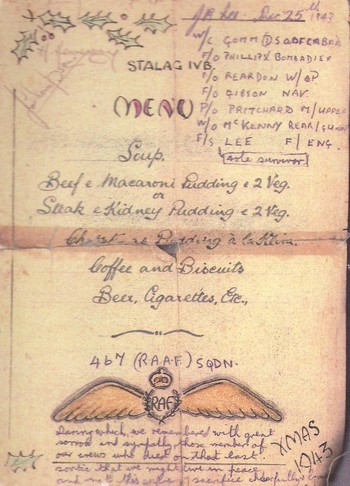 Dec 25th 1943
STALAG IVB.
MENU
Soup.
Beef & Macaroni Pudding & 2 Veg.
or
Steak & Kidney Pudding & 2 Veg.
Pudding à la
Coffee and Biscuits
Beer, Cigarettes, Etc.,
W/C GOMM DSO DFC
F/O PHILLIPS BOMBADIER
F/O REARDON W/OP
F/O GIBSON NAV.
P/O PRITCHARD M/UPPER
W/O McKENNY REAR/GUNNER
F/S LEE F/ENG.
sole survivor
467 (R.A.A.F) SQDN.
RAF
which, we remember with great
sorrow and sympathy those members of
our crews who died on that last
sortie that we might live in peace
XMAS
1943